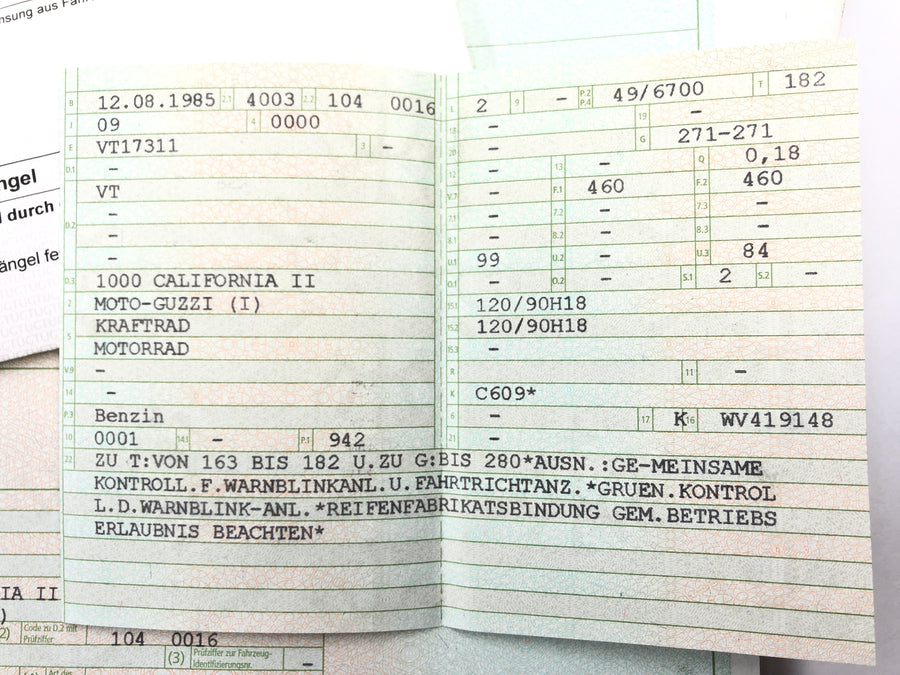 nsung aus Fahr
ngel
durch
ängel fe
B 12.08.1985 2.1 4003 2.2 104 0016
J 09 4 0000
E VT17311 3 –
D.1 –
VT
–
D.2 –
–
D.3 1000 CALIFORNIA II
2 MOTO-GUZZI (I)
5 KRAFTRAD
MOTORRAD
V.9 –
14 –
P.3 Benzin
10 0001 14.1 – P.1 942
L 2 9 – P.2 P.4 49/6700 T 182
18 – 19 –
20 – G 271-271
12 – 13 – Q 0,18
V.7 – F.1 460 F.2 460
7.1 – 7.2 – 7.3 –
8.1 – 8.2 – 8.3 –
U.1 99 U.2 – U.3 84
O.1 – O.2 – S.1 2 S.2 –
15.1 120/90H18
15.2 120/90H18
15.3 –
R 11 –
K C609*
6 – 17 K 16 WV419148
21 –
22 ZU T:VON 163 BIS 182 U.ZU G:BIS 280*AUSN.:GE-MEINSAME
KONTROLL.F.WARNBLINKANL.U.FAHRTRICHTANZ.*GRUEN.KONTROL
L.D.WARNBLINK-ANL.*REIFENFABRIKATSBINDUNG GEM.BETRIEBS
ERLAUBNIS BEACHTEN*
IA II
)
2) Code zu D.2 mit Prüfziffer 104 0016
(3) Prüfziffer zur Fahrzeug-
Identifizierungsnr. –
Art des